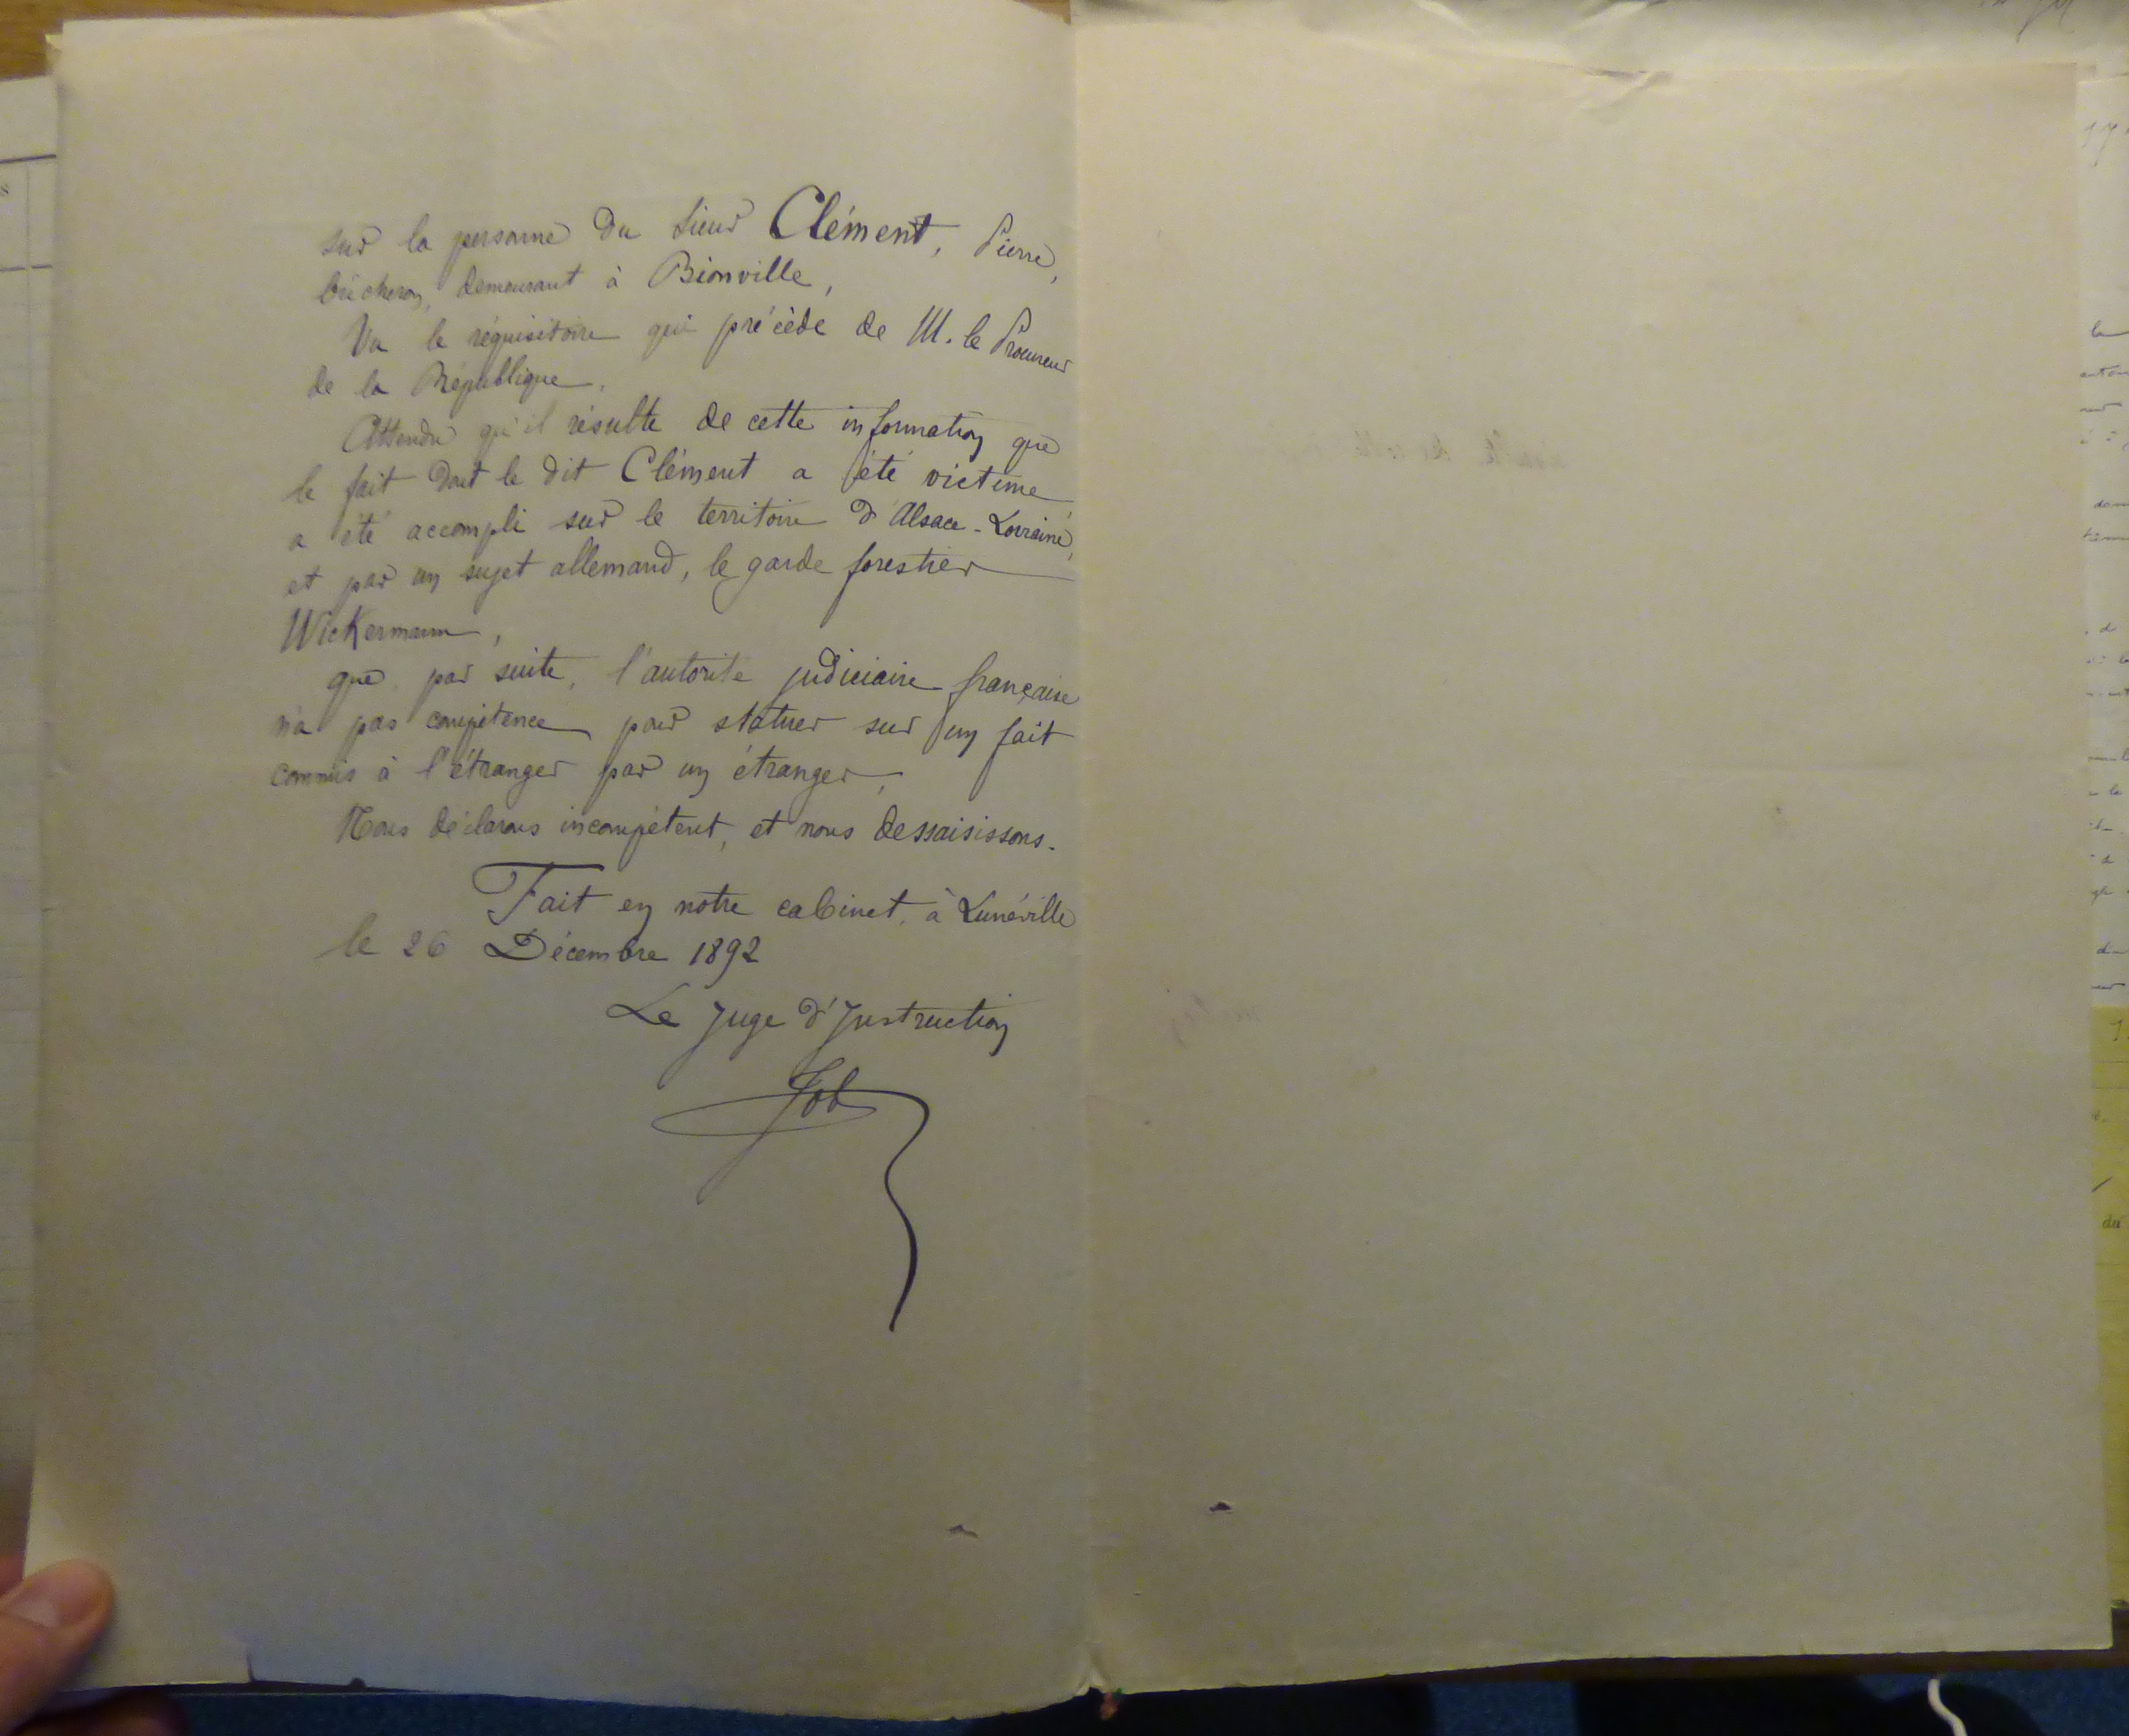 sur la personne du sieur Clément, Pierre,
bûcheron, demeurant à Bionville,
Vu le réquisitoire qui précède de M. le Procureur
de la République,
Attendu qu'il résulte de cette information que
le fait dont le dit Clément a été victime
a été accompli sur le territoire d'Alsace-Lorraine,
et par un sujet allemand, le garde forestier
Wickermann,
que par suite, l'autorité judiciaire française
n'a pas compétence pour statuer sur un fait
commis à l'étranger par un étranger,
Nous déclarons incompétent, et nous dessaisissons.
Fait en notre cabinet, à Lunéville
le 26 Décembre 1892
Le Juge d'Instruction
Job
du